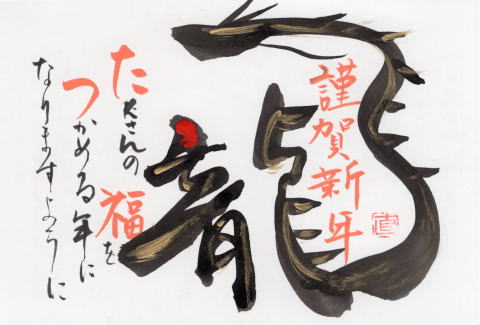 謹賀新年
龍
たくさんの福を
つかめる年に
なりますように